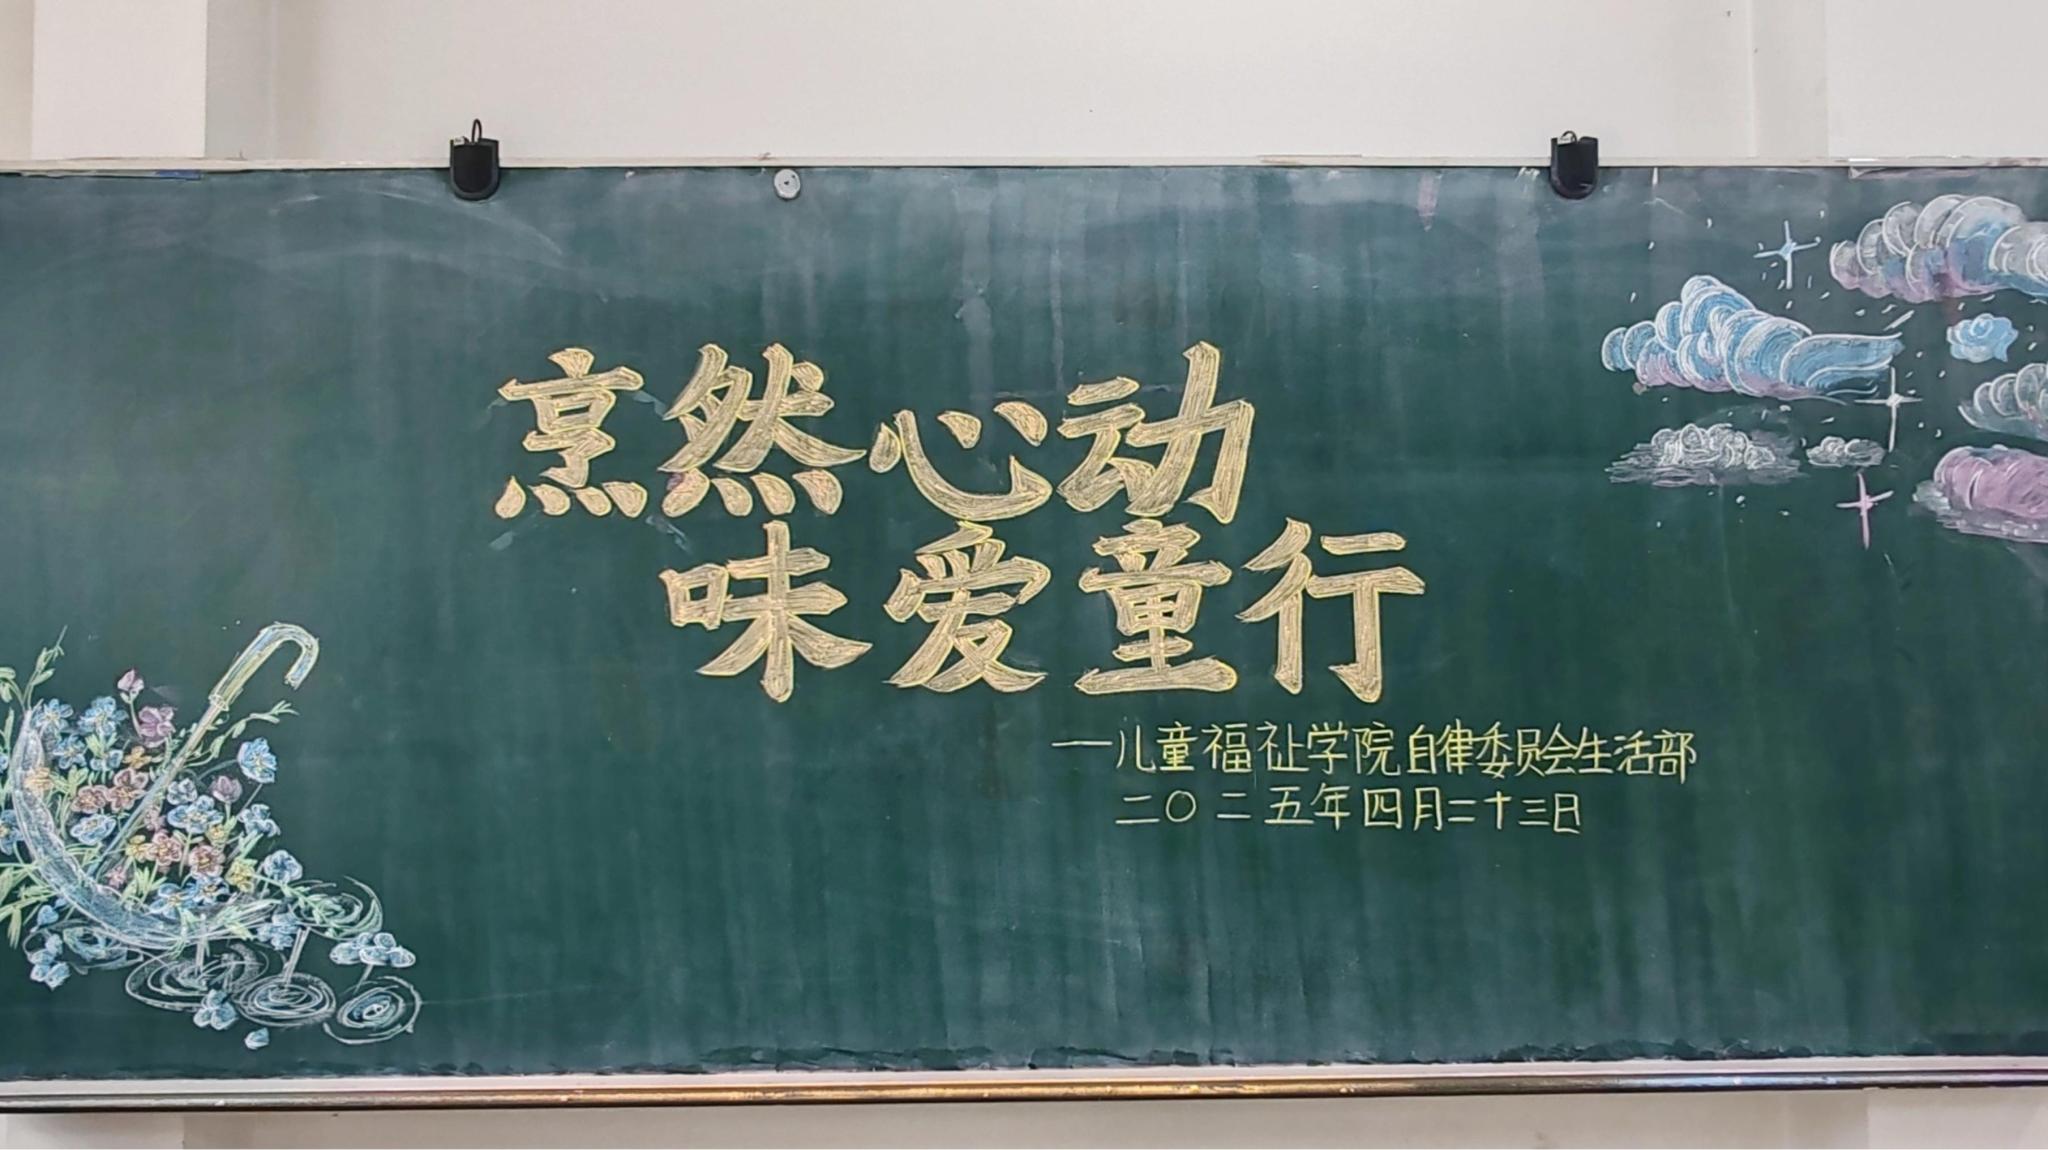 烹然心动
味爱童行
一儿童福祉学院自律委员会生活部
二〇二五年四月二十三日